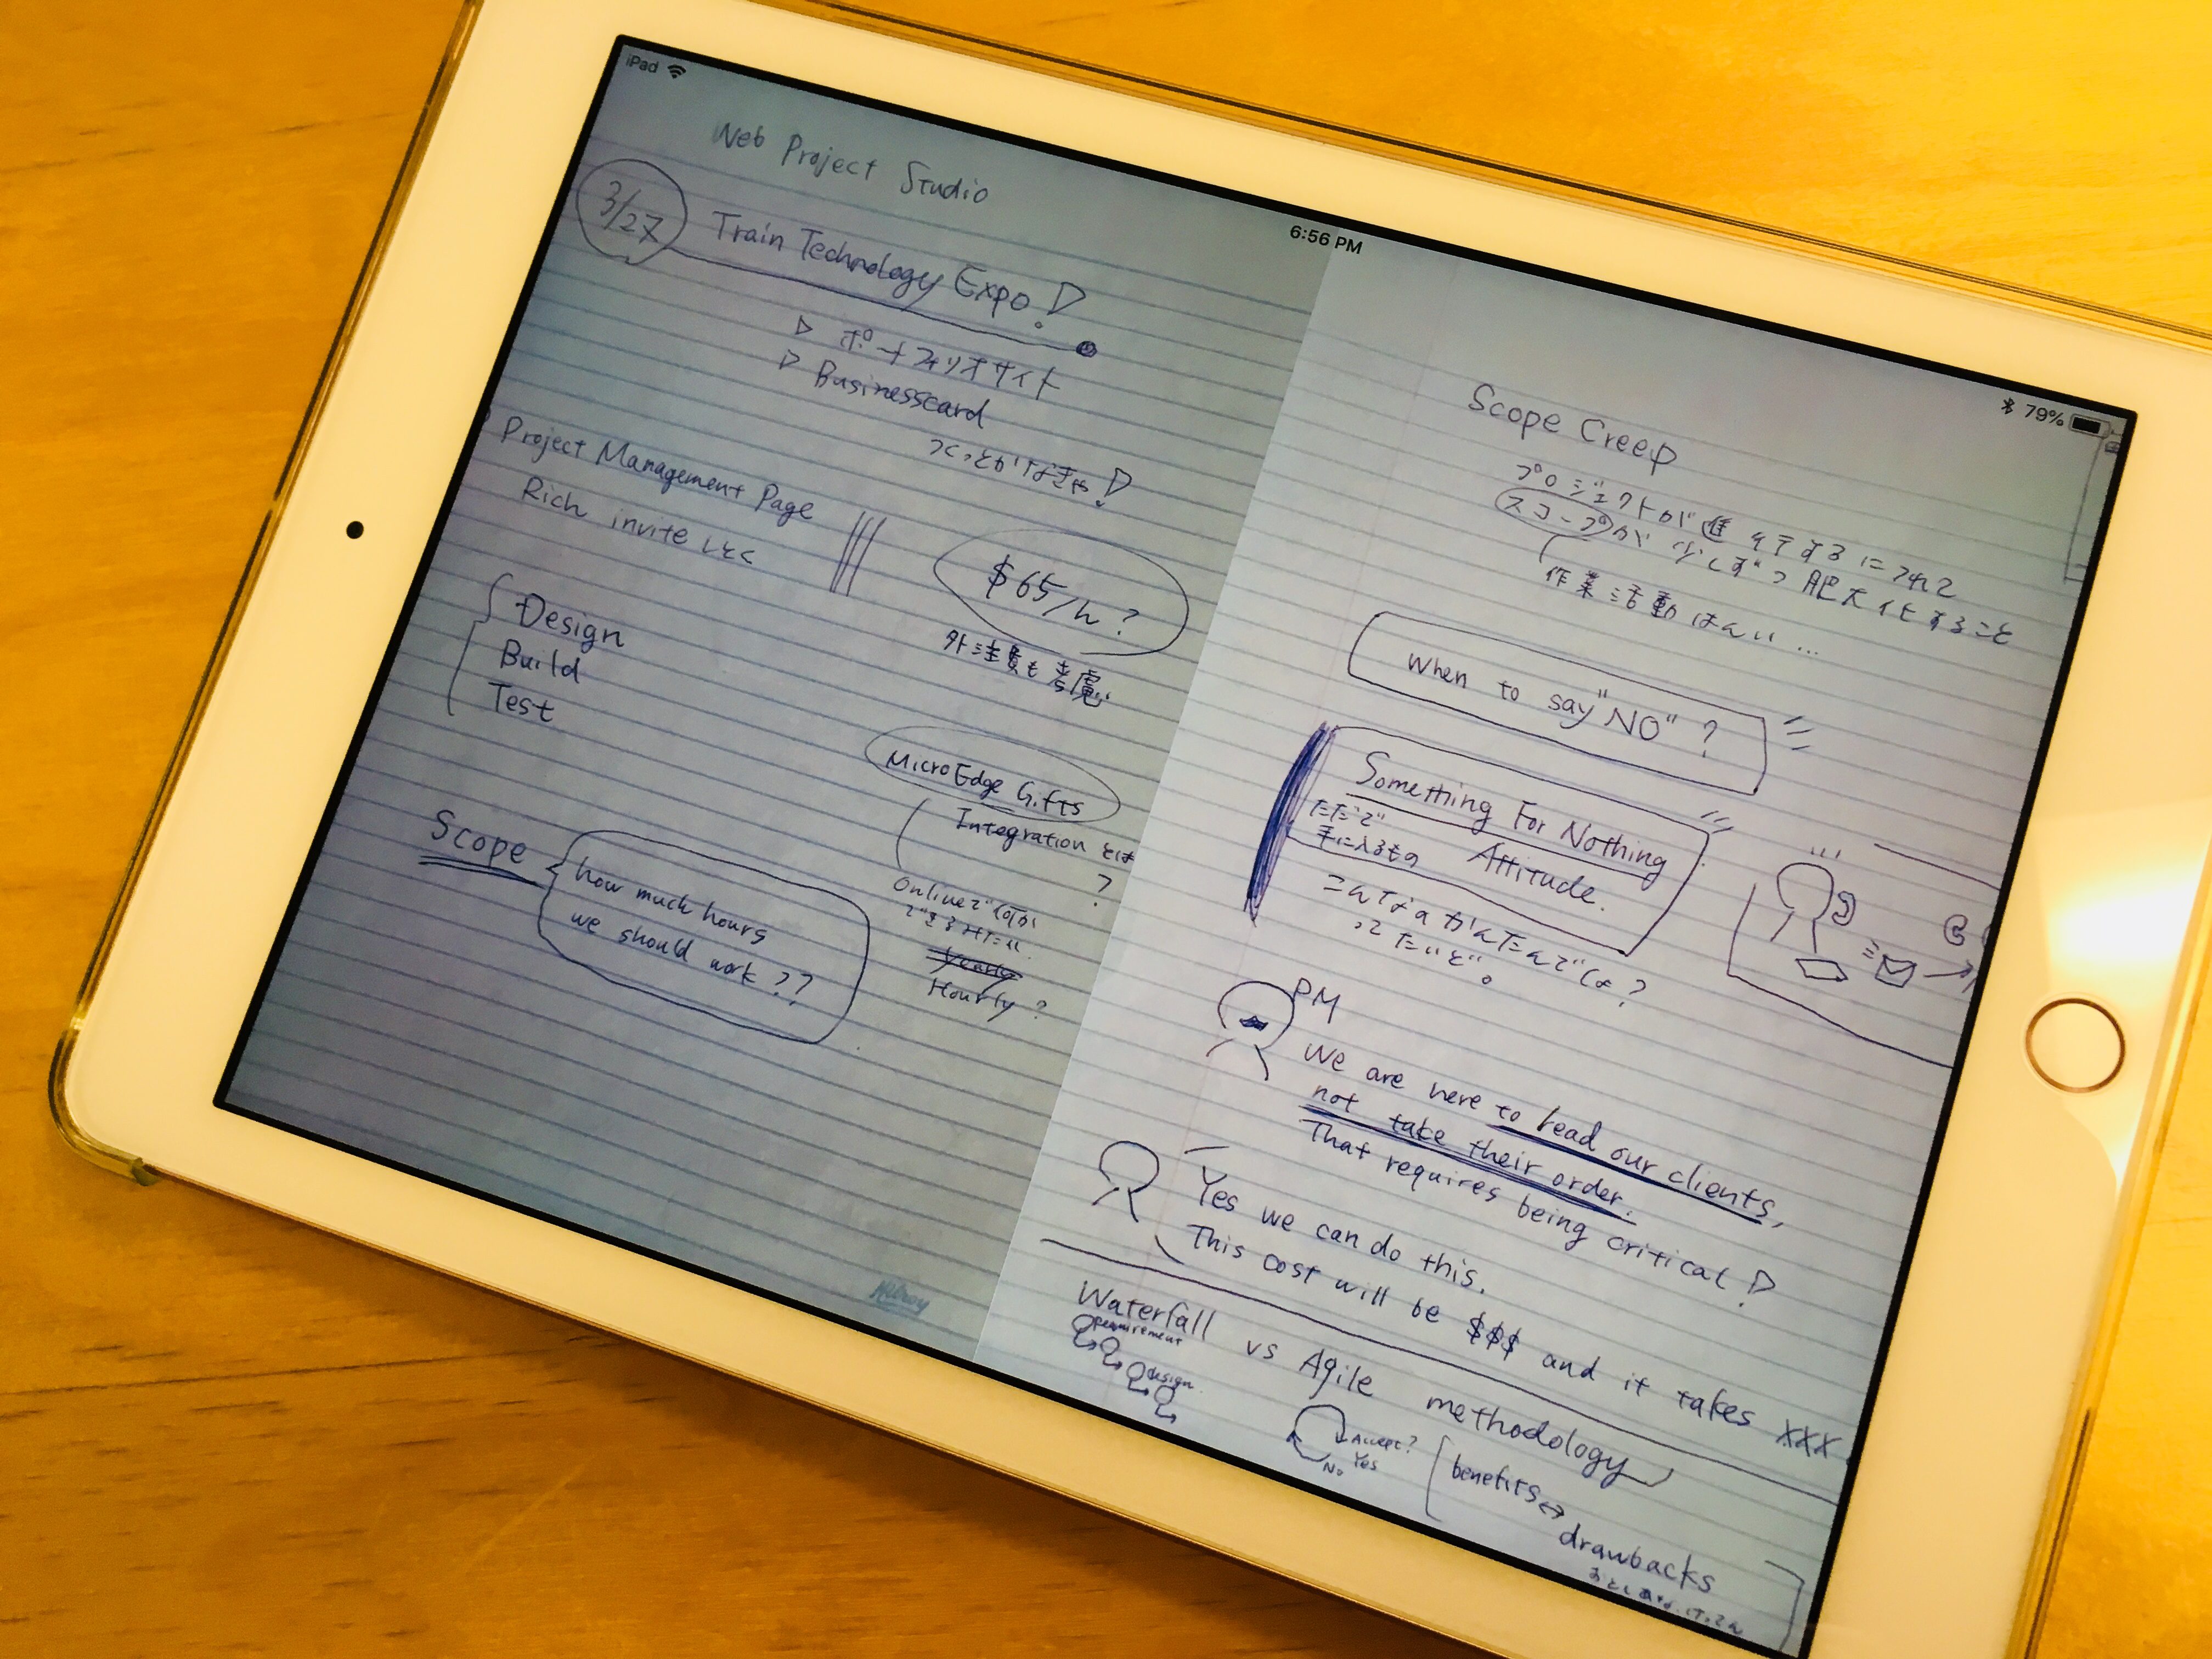 iPad
6:56 PM
79%
Web Project Studio
3/27
Train Technology Expo!
▷ ポートフォリオサイト
▷ Businesscard
つくっとかなきゃ!
Project Management Page
Rich invite しとく
$65/h?
外注費も考慮
Design
Build
Test
MicroEdge Gifts
Integration とは
?
Onlineで何か
できるみたい
Yearly
Hourly?
Scope
how much hours
we should work??
Hilroy
Scope Creep
プロジェクトが進行するにつれて
スコープが少しずつ肥大化すること
作業活動はんい...
When to say "NO"?
Something For Nothing
Attitude.
ただで
手に入るもの
こんなのかんたんでしょ?
ったいど。
PM
We are here to lead our clients,
not take their order.
That requires being critical!
Yes we can do this.
This cost will be $$$ and it takes XXX
Waterfall vs Agile methodology
requirement
design
Accept?
Yes
No
benefits↔
drawbacks